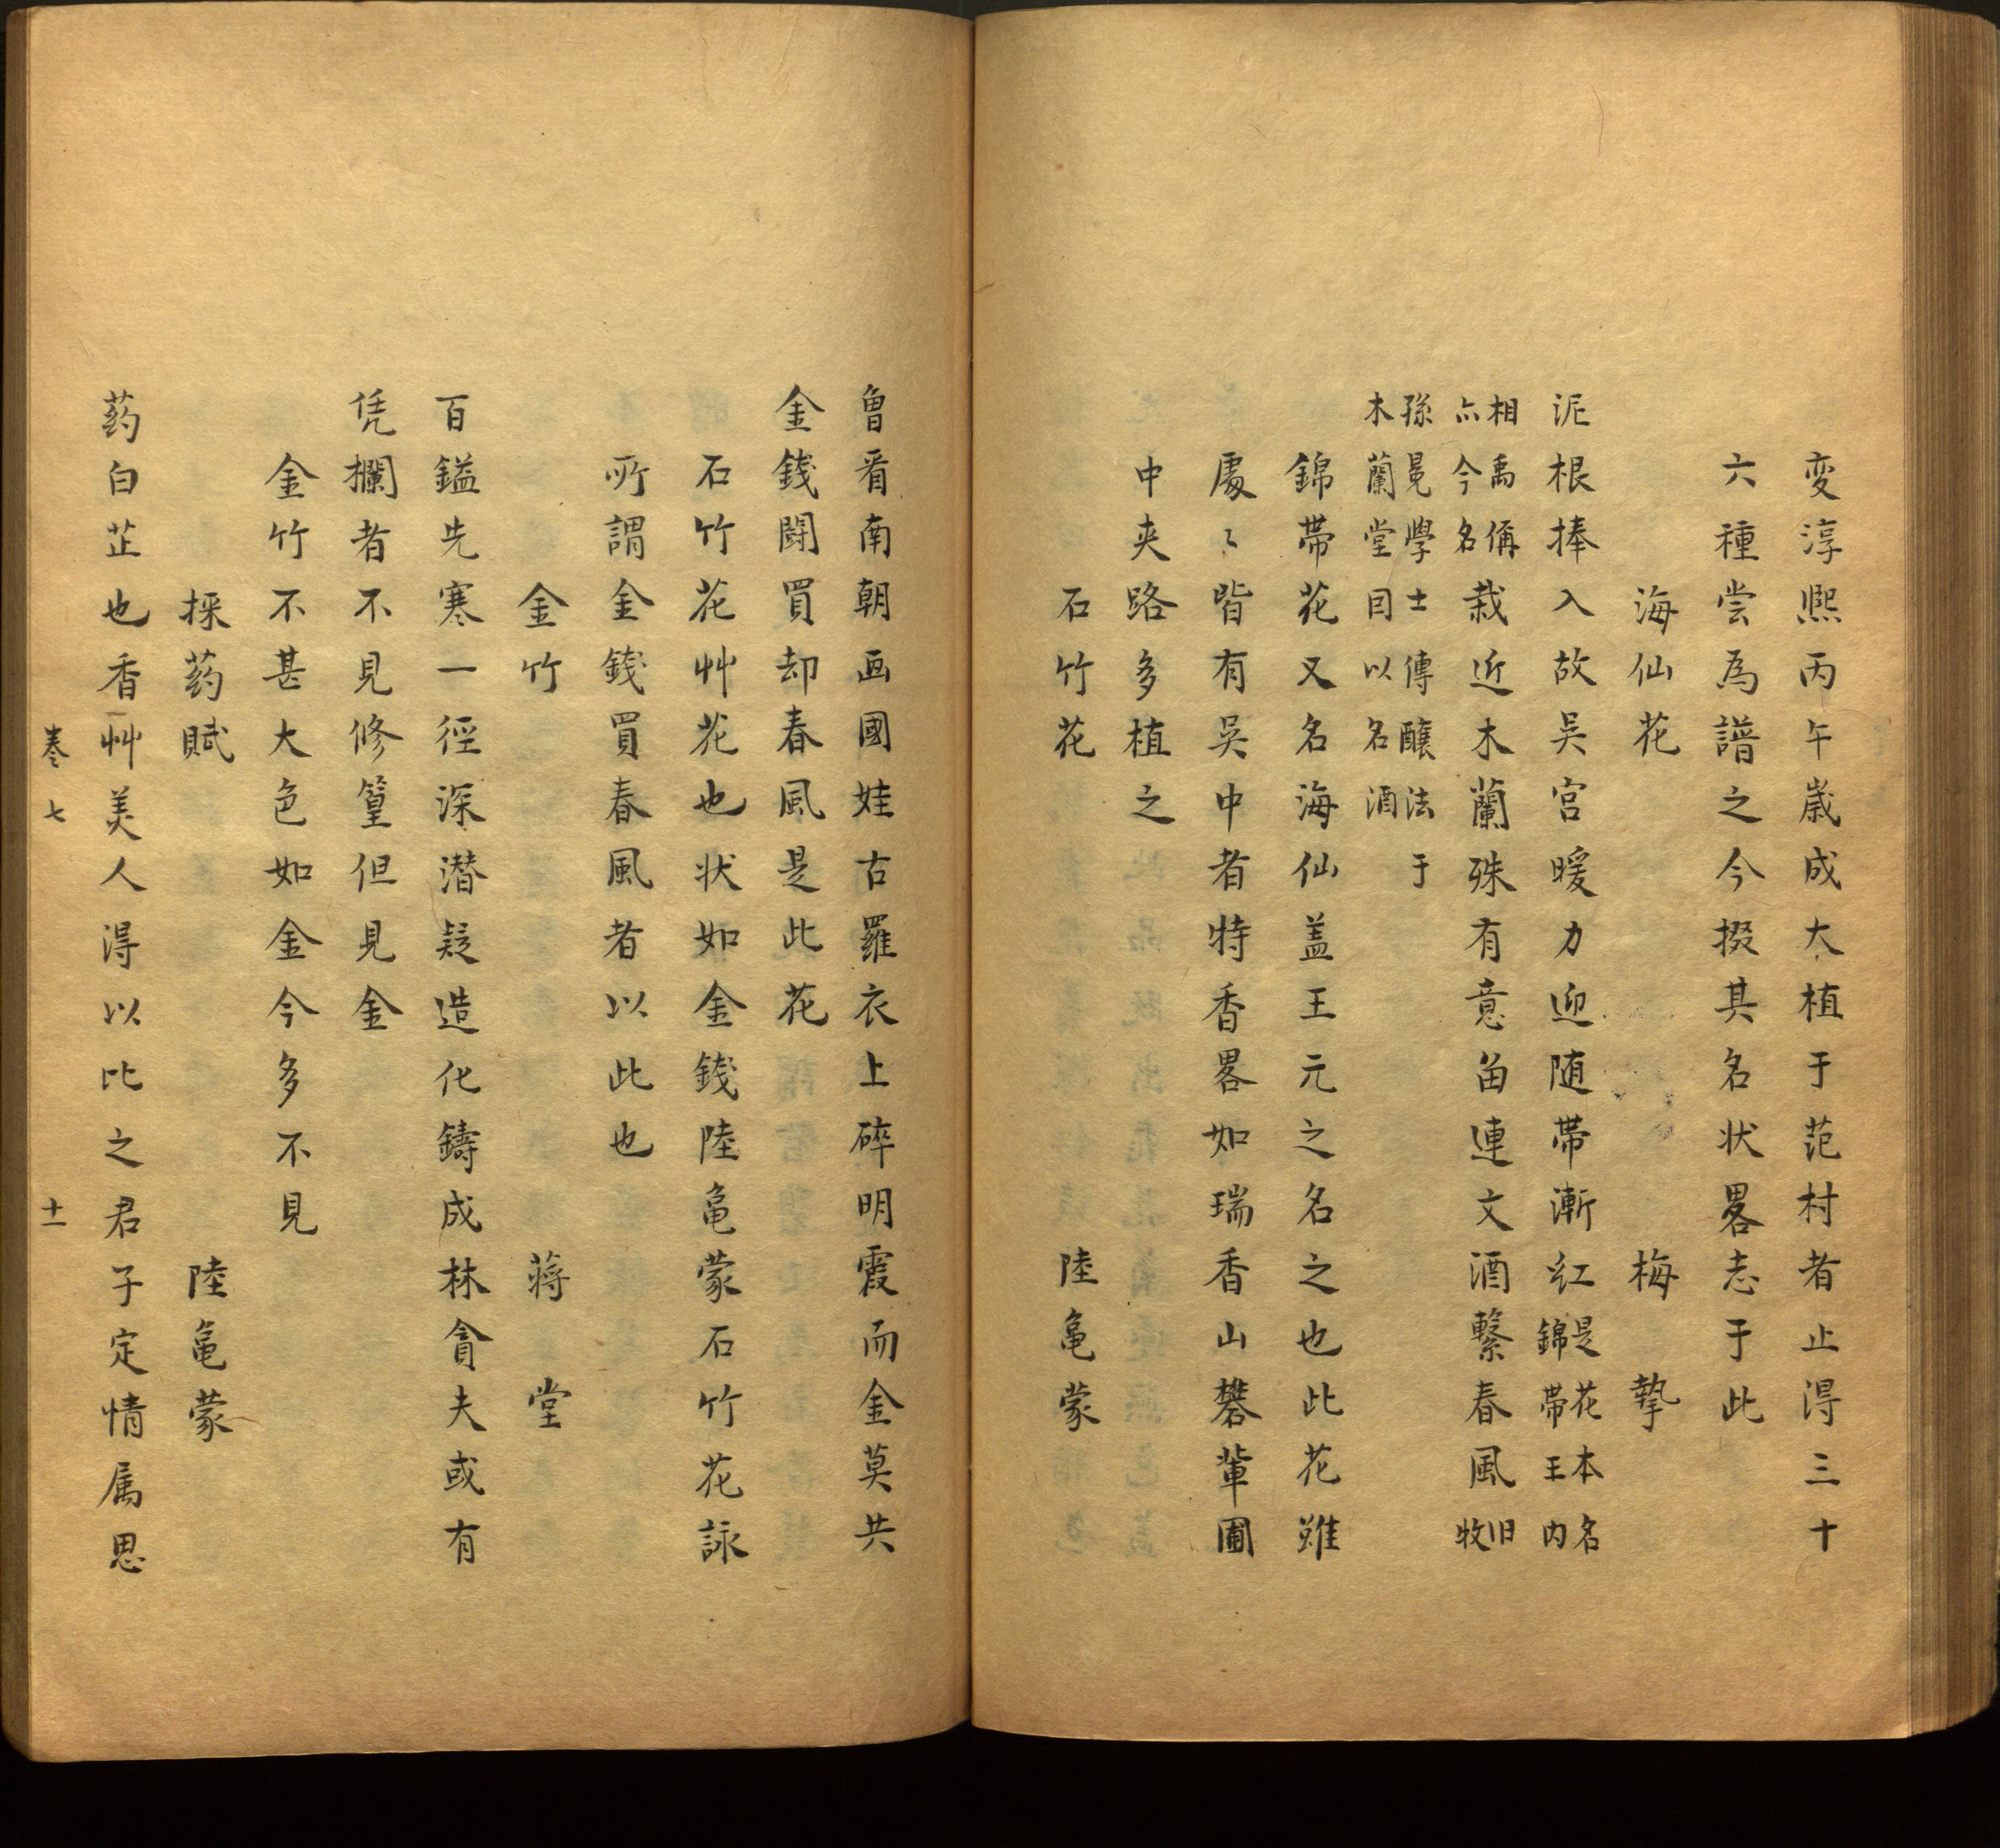 変淳熈丙午嵗成大植于范村者止得三十
六種尝為譜之今掇其名状畧志于此
海仙花　梅摯
泥根捧入故吴宫暖力迎随帯漸紅是花本名錦帯王内
相禹偁亦今名栽近木蘭殊有意畄連文酒繋春風旧牧
孫冕學士傳醸法于木蘭堂目以名酒
錦帯花又名海仙盖王元之名之也此花雖
處〻皆有吴中者特香畧如瑞香山礬輩圃
中夹路多植之
石竹花　陸亀蒙
曽看南朝画國娃古羅衣上碎明霞而金莫共
金錢闘買却春風是此花
石竹花艸花也状如金錢陸亀蒙石竹花詠
所謂金錢買春風者以此也
金竹　蒋堂
百鎰先寒一徑深潜疑造化鑄成林貪夫或有
凭欄者不見修篁但見金
金竹不甚大色如金今多不見
採药賦　陸亀蒙
药白芷也香艸美人得以比之君子定情属思
卷七　十一